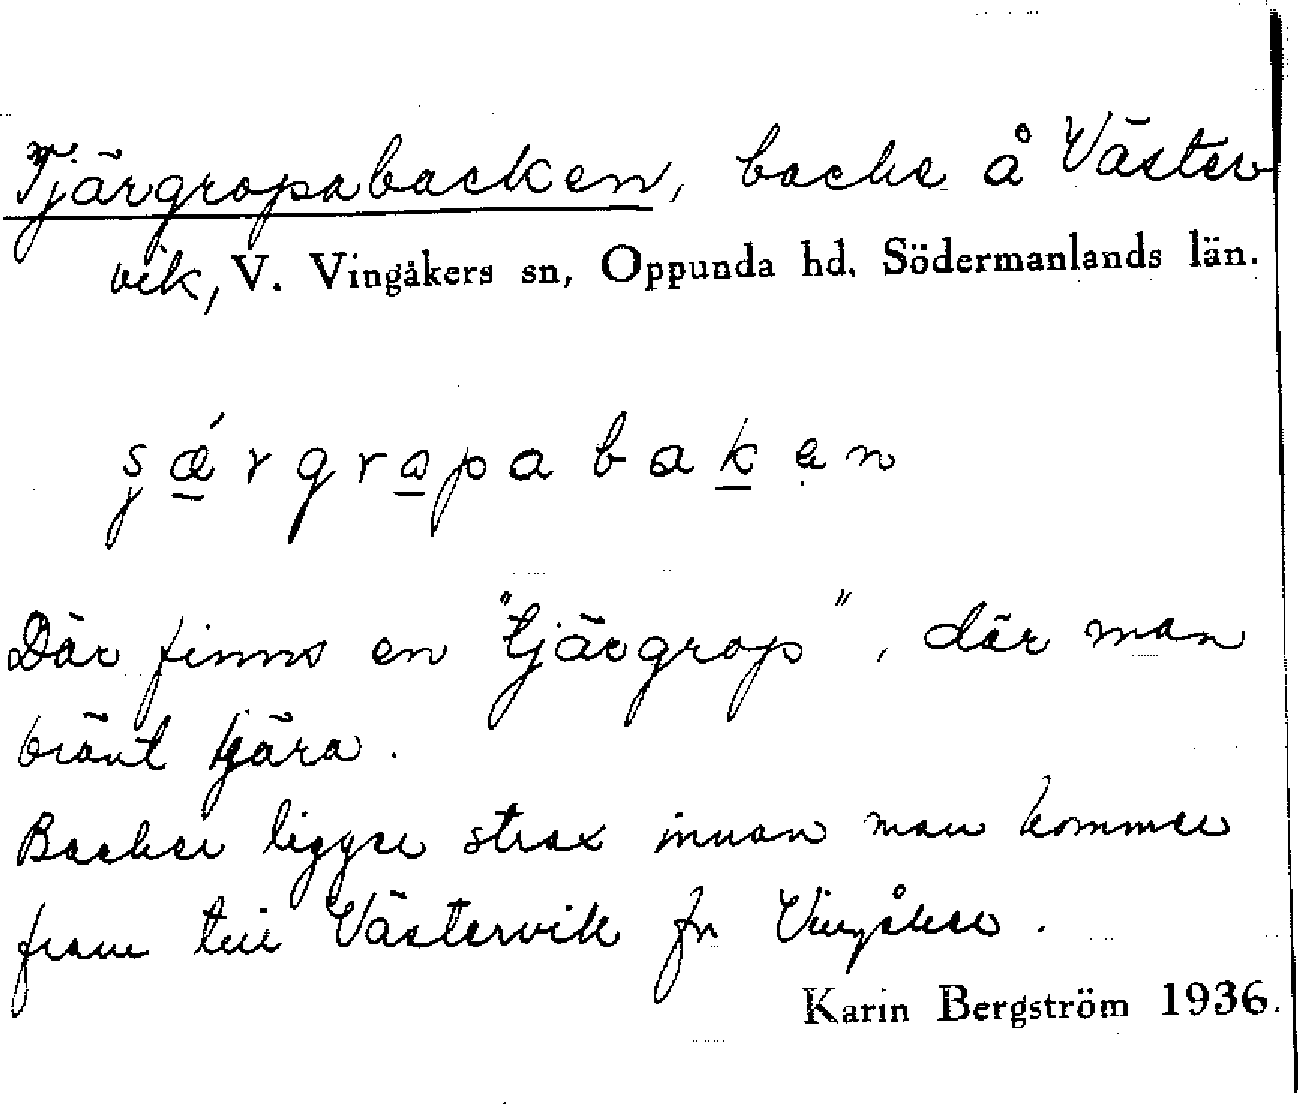 Tjärgropabacken, backe å Väster-
vik, V. Vingåkers sn, Oppunda hd, Södermanlands län.
Där finns en "tjärgrop", där man
bränt tjära.
Backen ligger strax innan man kommer
fram till Västervik fr Vingåker.
Karin Bergström 1936.